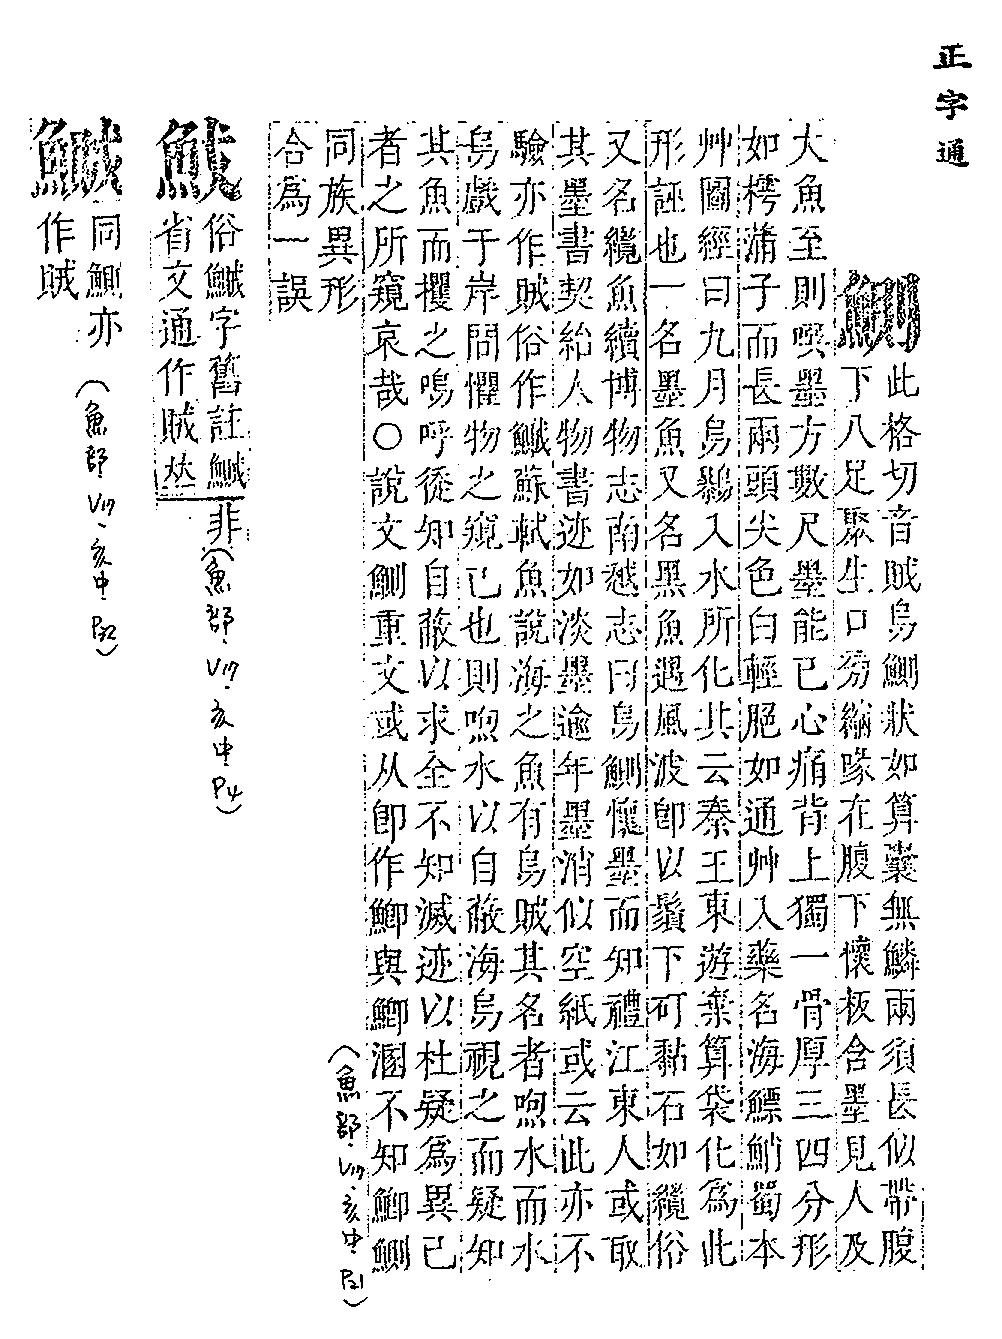 正字通
鰂
此格切音賊烏鰂狀如算囊無鱗兩須長似帶腹
下八足聚生口旁縮喙在腹下懷板含墨見人及
大魚至則噀墨方數尺墨能已心痛背上獨一骨厚三四分形
如樗蒲子而長兩頭尖色白輕脆如通艸入藥名海鰾鮹蜀本
艸圖經曰九月烏入水所化其云秦王東遊棄算袋化爲此
形誣也一名墨魚又名黑魚遇風波卽以鬚下矴黏石如纜俗
又名纜魚續博物志南越志曰烏鰂懷墨而知禮江東人或取
其墨書契紿人物書迹如淡墨逾年墨消似空紙或云此亦不
驗亦作賊俗作鱡蘇軾魚說海之魚有烏賊其名者呴水而水
烏戲于岸間懼物之窺己也則呴水以自蔽海烏視之而疑知
其魚而攫之嗚呼徒知自蔽以求全不知滅迹以杜疑爲異己
者之所窺哀哉○說文鰂重文或从卽作鯽與鯽溷不知鯽鰂
同族異形
合爲一誤
(魚部、V17、亥中、P21)
俗鱡字舊註鱡
省文通作賊𠀤
非
(魚部、V17、亥中、P4)
鱡
同鰂亦
作賊
(魚部、V17、亥中、P32)